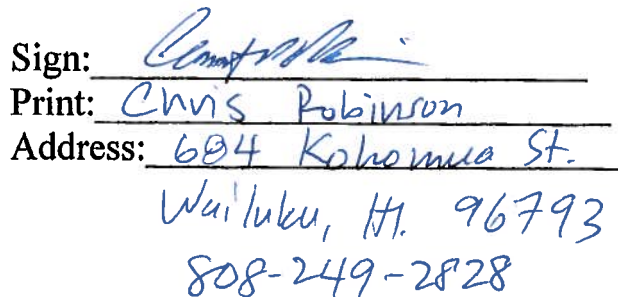 Sign:
Print: Chris Robinson
Address: 684 Kohomua St.
Wailuku, HI. 96793
808-249-2828